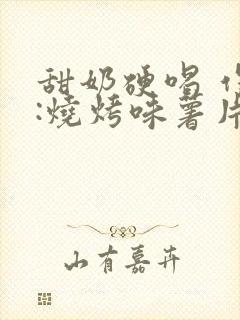 甜奶硬唱
:燒烤味薯片
山有嘉卉